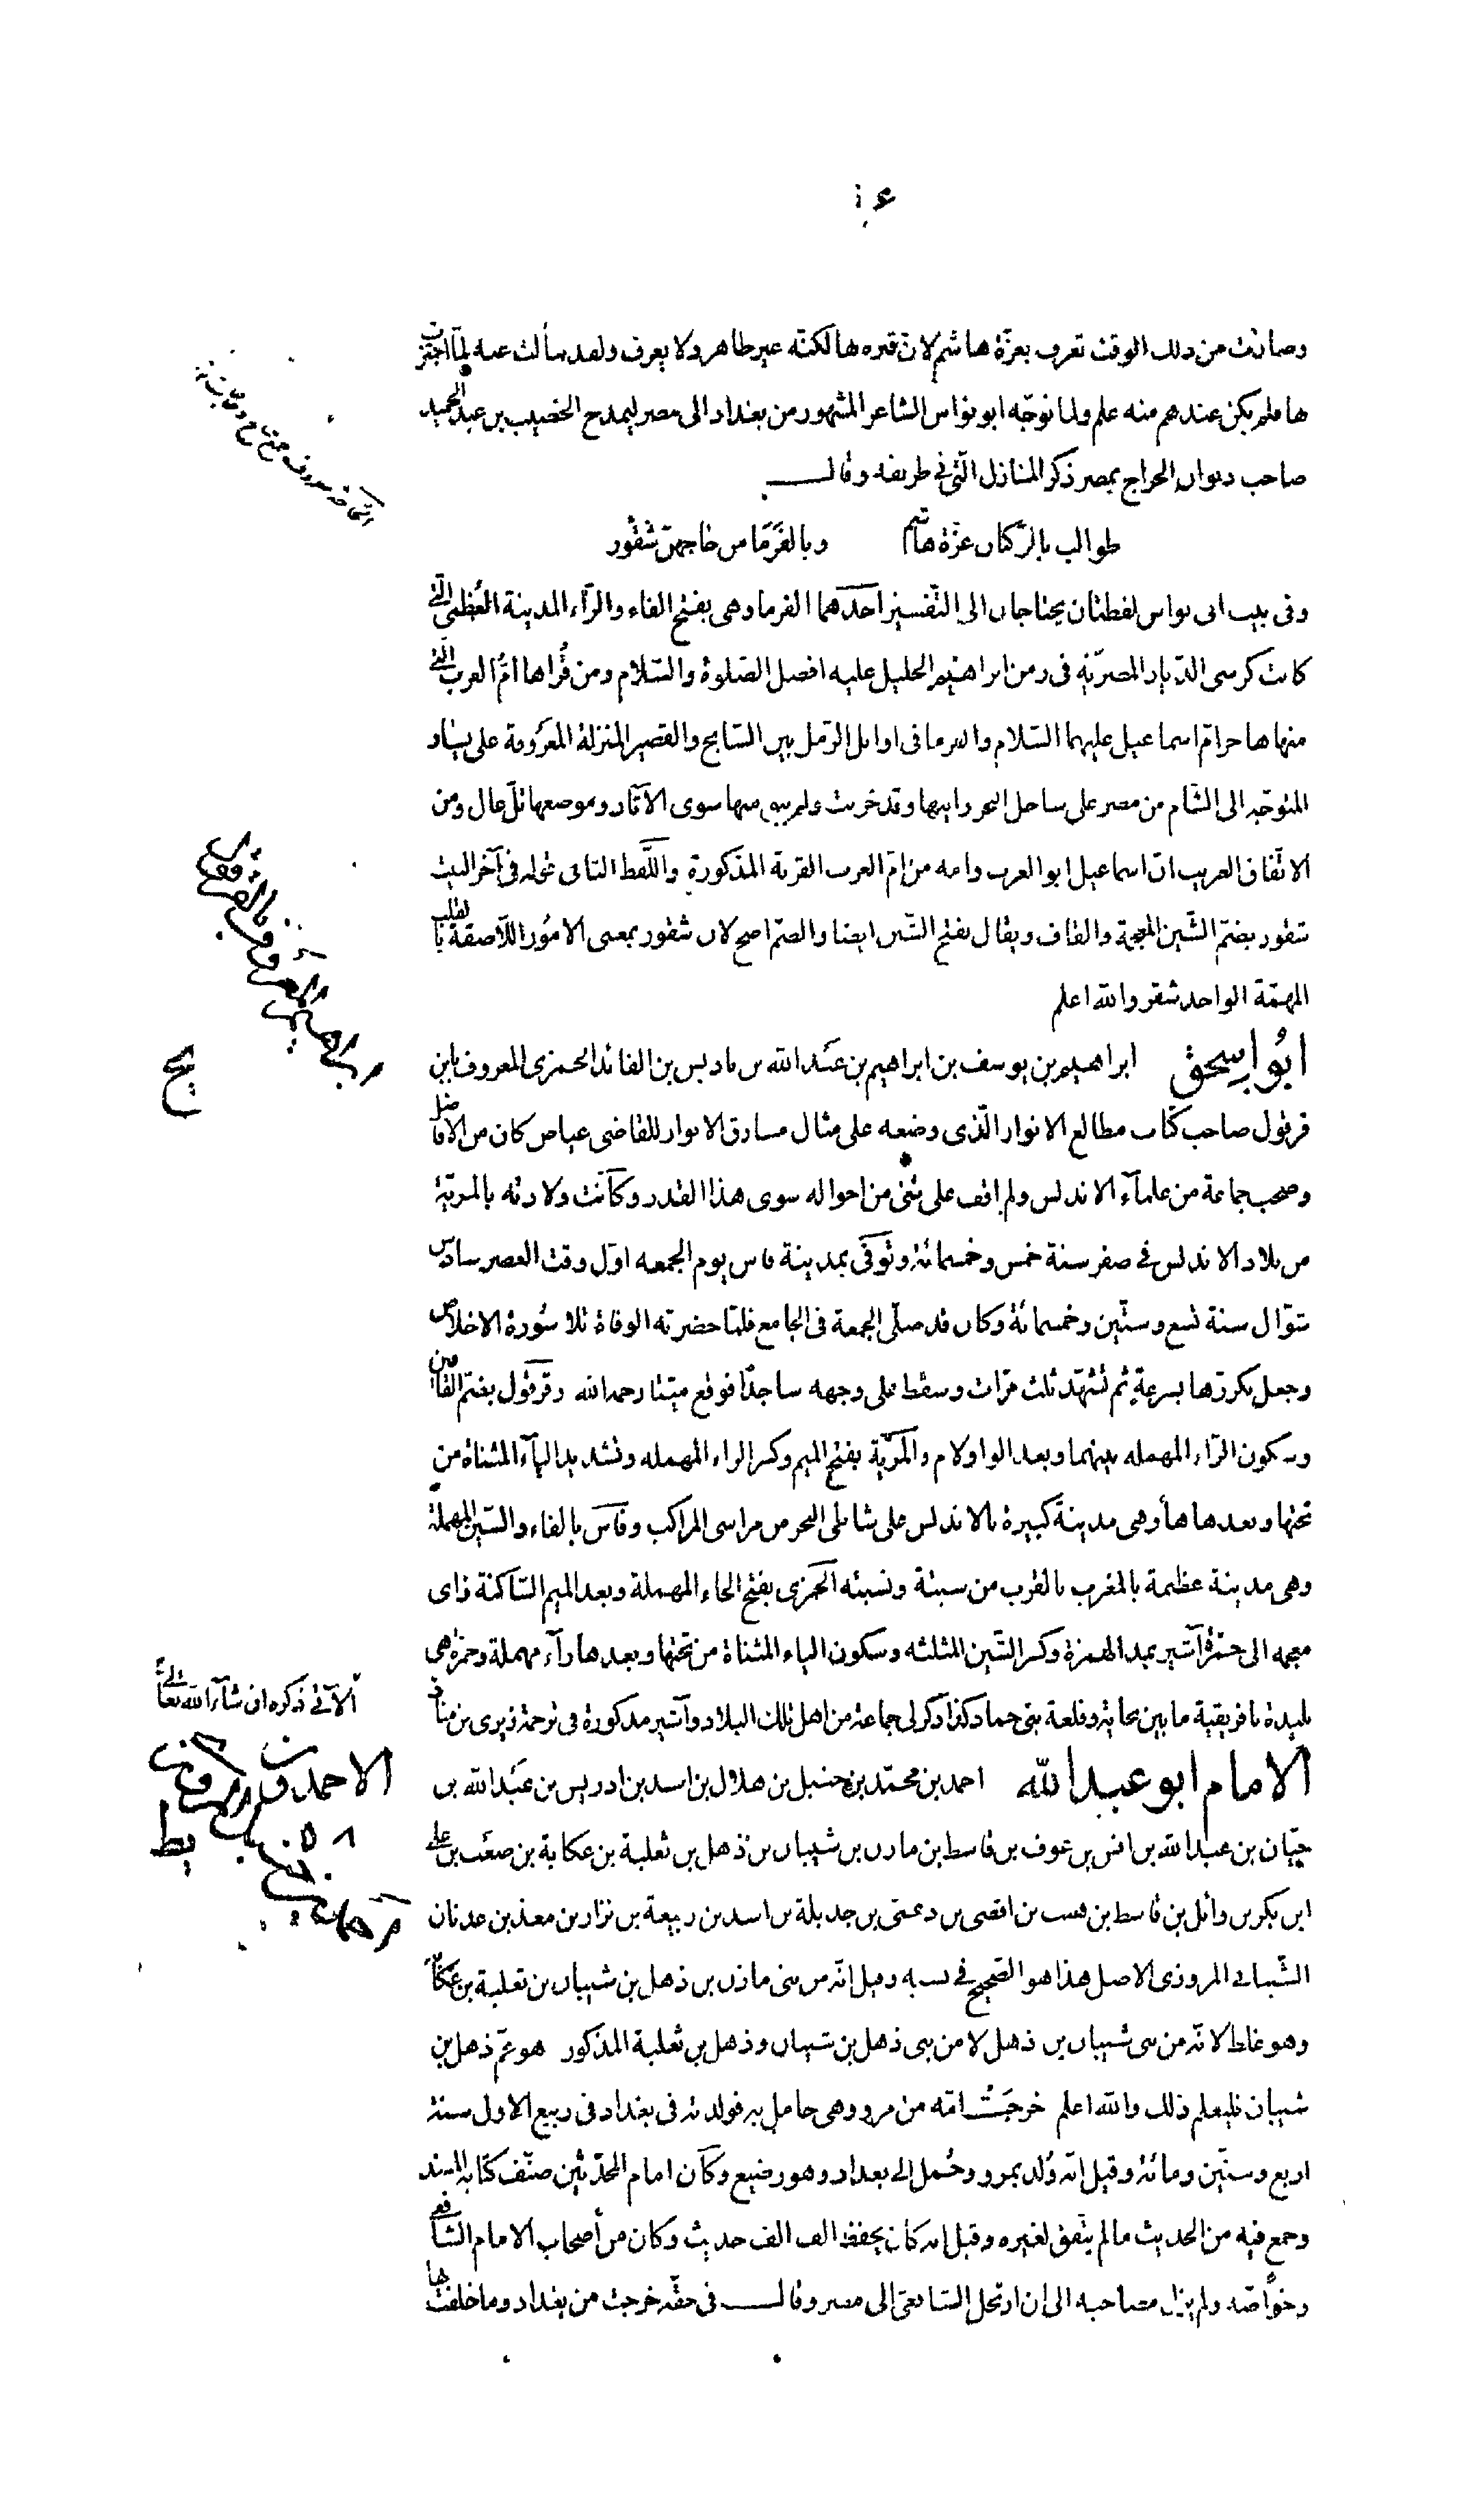 وصارت من ذلك الوقت تعرف بغزة هاشم لان قبره بها لكنه غير ظاهر ولا يعرف ولقد سألت عنه لما اجتزت
بها فلم يكن عندهم منه علم ولما توجه ابو نواس الشاعر المشهور من بغداد الى مصر ليمدح الخصيب بن عبد الحميد
صاحب ديوان الخراج بمصر ذكر المنازل التى فى طريقه وقال
طوالب بالركبان غزة هاشم وبالفرما من حاجهن شقور
وفى بيت ابى نواس لفظتان يحتاجان الى التفسير احدهما الفرما وهى بفتح الفاء والراء المدينة العظمى التى
كانت كرسى الديار المصرية فى زمن ابراهيم الخليل عليه افضل الصلوة والسلام ومن قراها ام العرب التى
منها هاجر ام اسماعيل عليهما السلام والفرما فى اوايل الرمل بين السابح والقصير المنزلة المعروفة على يسار
المتوجه الى الشام من مصر على ساحل البحر رايتها وقد خربت ولم يبق منها سوى الآثار وموضعها تل عال ومن
الاتفاق الغريب ان اسماعيل ابو العرب وامه من ام العرب القرية المذكورة واللفظ الثانى قوله فى آخر البيت
شقور بضم الشين المعجمة والقاف ويقال بفتح الشين ايضا والضم اصح لان شقور بمعنى الامور اللاصقة بالقلب
المهمة الواحد شقر والله اعلم
ابو اسحق ابراهيم بن يوسف بن ابراهيم بن عبد الله بن باديس بن القائد الحمزى المعروف بابن
قرقول صاحب كتاب مطالع الانوار الذى وضعه على مثال مشارق الانوار للقاضى عياض كان من الافاضل
وصحب جماعة من علماء الاندلس ولم اقف على شئ من احواله سوى هذا القدر وكانت ولادته بالمرية
من بلاد الاندلس فى صفر سنة خمس وخمسمائة وتوفى بمدينة فاس يوم الجمعه اول وقت العصر سادس
شوال سنة تسع وستين وخمسمائة وكان قد صلى الجمعة فى الجامع فلما حضرته الوفاة تلا سورة الاخلاص
وجعل يكررها بسرعة ثم تشهد ثلث مرات وسقط على وجهه ساجدا فوقع ميتا رحمه الله وقرقول بضم القافين
وسكون الراء المهمله بينهما وبعد الواو لام والمرية بفتح الميم وكسر الراء المهمله وتشديد الياء المثناة من
تحتها وبعدها هاء وهى مدينة كبيرة بالاندلس على شاطى البحر من مراسى المراكب وفاس بالفاء والسين المهملة
وهى مدينة عظيمة بالمغرب بالقرب من سبتة ونسبته الحمزى بفتح الحاء المهملة وبعد الميم الساكنة زاى
معجمه الى حمزة آشير بمد الهمزة وكسر الشين المثلثه وسكون الياء المثناة من تحتها وبعدها راء مهملة وحمزة هى
بليدة بافريقية ما بين بجاية وقلعة بنى حماد كذا ذكر لى جماعة من اهل تلك البلاد وآشير مذكورة فى ترجمة زيرى بن مناد
الآتى ذكره ان شاء الله تعالى
الامام ابو عبد الله احمد بن محمد بن حنبل بن هلال بن اسد بن ادريس بن عبد الله بن
حيان بن عبد الله بن انس بن عوف بن قاسط بن مازن بن شيبان بن ذهل بن ثعلبة بن عكابة بن صعب بن على
ابن بكر بن وائل بن قاسط بن هنب بن افصى بن دعمى بن جديلة بن اسد بن ربيعة بن نزار بن معد بن عدنان
الشيبانى المروزى الاصل هذا هو الصحيح فى نسبه وقيل انه من بنى مازن بن ذهل بن شيبان بن ثعلبة بن عكابة
وهو غلط لانه من بنى شيبان بن ذهل لا من بنى ذهل بن شيبان وذهل بن ثعلبة المذكور هو عم ذهل بن
شيبان فليعلم ذلك والله اعلم خرجت امه من مرو وهى حامل به فولدته فى بغداد فى ربيع الاول سنة
اربع وستين ومائة وقيل انه ولد بمرو وحمل الى بغداد وهو رضيع وكان امام المحدثين صنف كتابه المسند
وجمع فيه من الحديث ما لم يتفق لغيره وقيل انه كان يحفظ الف الف حديث وكان من أصحاب الامام الشافعى
وخواصه ولم يزل مصاحبه الى ان ارتحل الشافعى الى مصر وقال فى حقه خرجت من بغداد وما خلفت بها
ابراهيم المعروف بابن قرقول